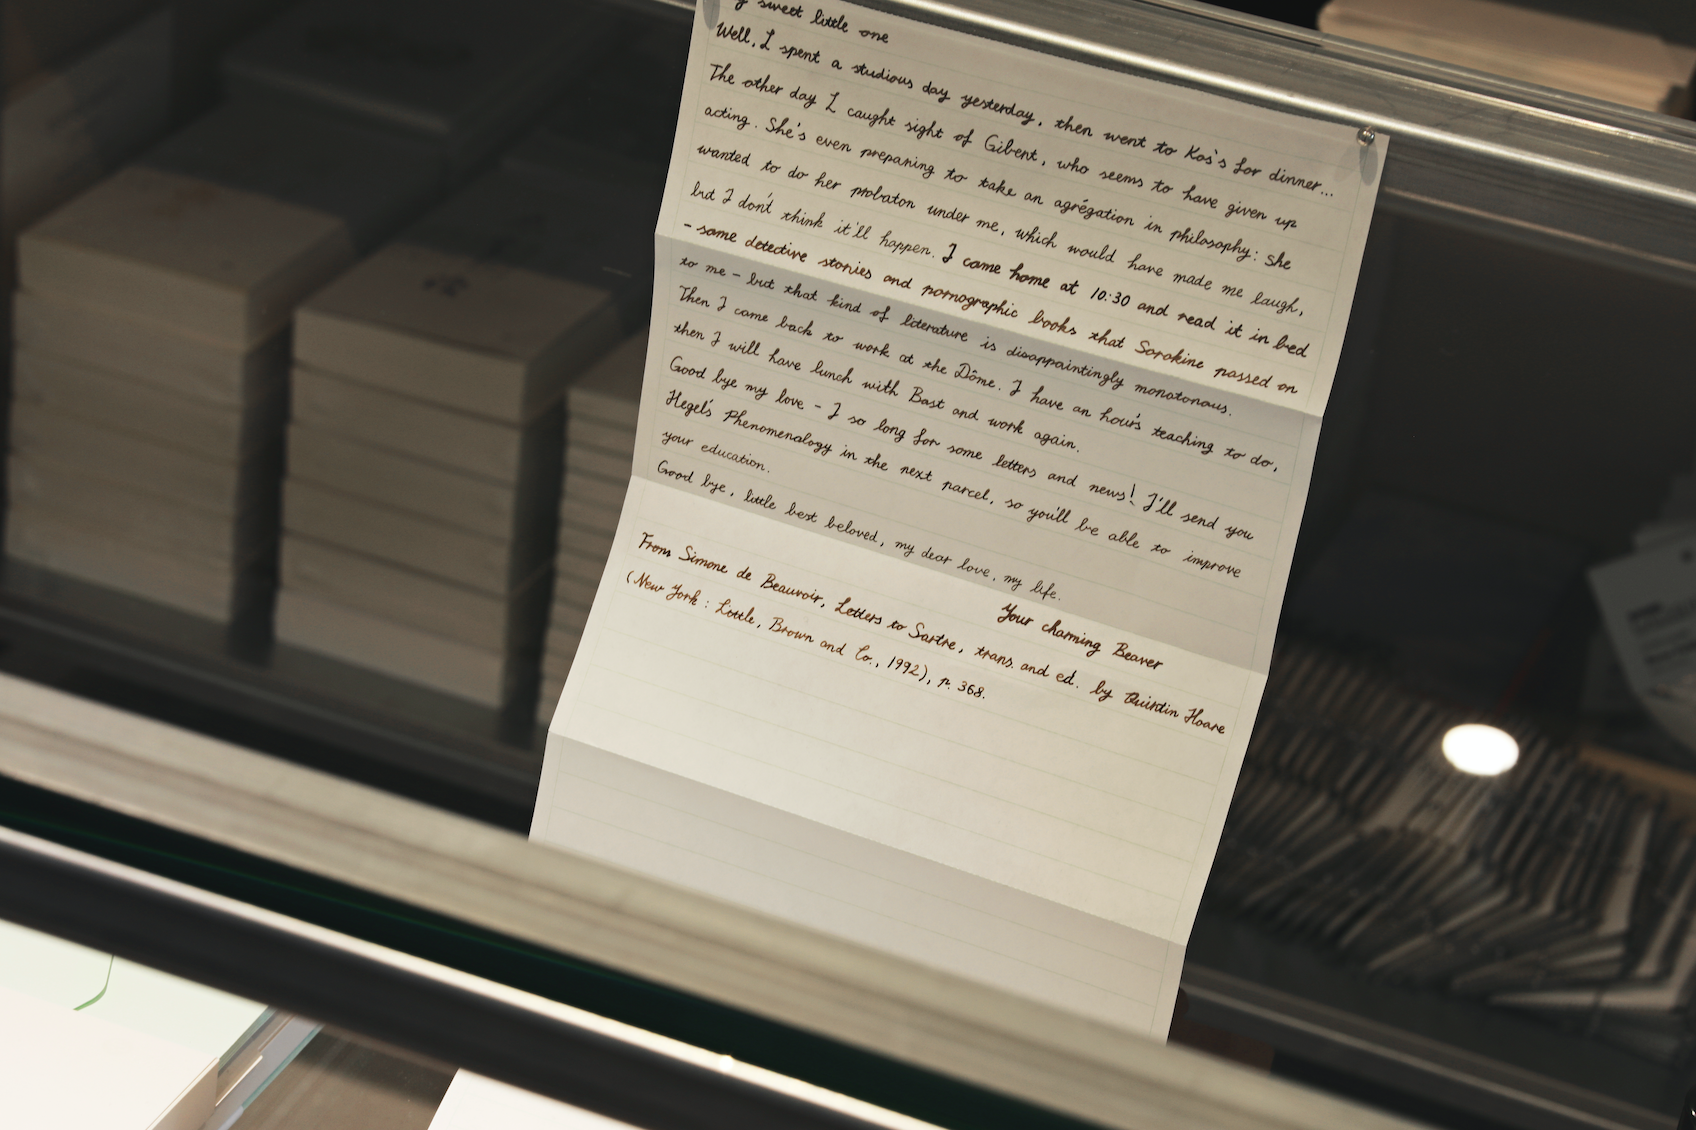 y sweet little one
Well, I spent a studious day yesterday, then went to Kos's for dinner...
The other day I caught sight of Gibent, who seems to have given up
acting. She's even preparing to take an agrégation in philosophy: she
wanted to do her probaton under me, which would have made me laugh,
but I don't think it'll happen. I came home at 10:30 and read it in bed
- some detective stories and pornographic books that Sorokine passed on
to me - but that kind of literature is disappaintingly monotonous.
Then I came back to work at the Dôme. I have an hour's teaching to do,
then I will have lunch with Bast and work again.
Good bye my love - I so long for some letters and news! I'll send you
Hegel's Phenomenology in the next parcel, so you'll be able to improve
your education.
Good bye, little best beloved, my dear love, my life.
Your charming Beaver
From Simone de Beauvoir, Letters to Sartre, trans. and ed. by Quintin Hoare
(New York: Little, Brown and Co., 1992), p. 368.